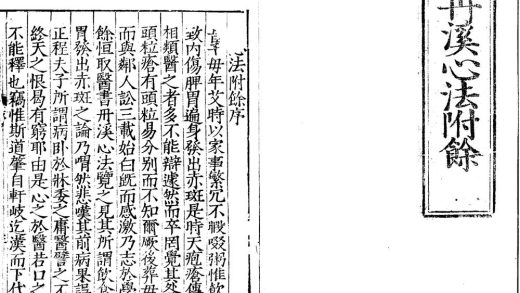 丹溪心法附餘
心法附餘序
毋年艾時以家事繁冗不暇啜粥惟飲
致內傷脾胃遍身發出赤斑是時天疱瘡傳
相類醫之者多不能辯遽然而卒罔覺其
頭粒瘡有頭粒易分別而不知爾厥後葬毋
而與鄰人訟三載始白既而感激乃志於學
餘恒取醫書丹溪心法覽之見其所謂飲食
胃發出赤斑之論乃喟然悲嘆其前病果誤
正程夫子所謂病卧於牀委之庸醫譬之不
終天之恨曷有窮耶由是心之於醫若口之
不能釋也竊惟斯道肇自軒岐迄漢而下代